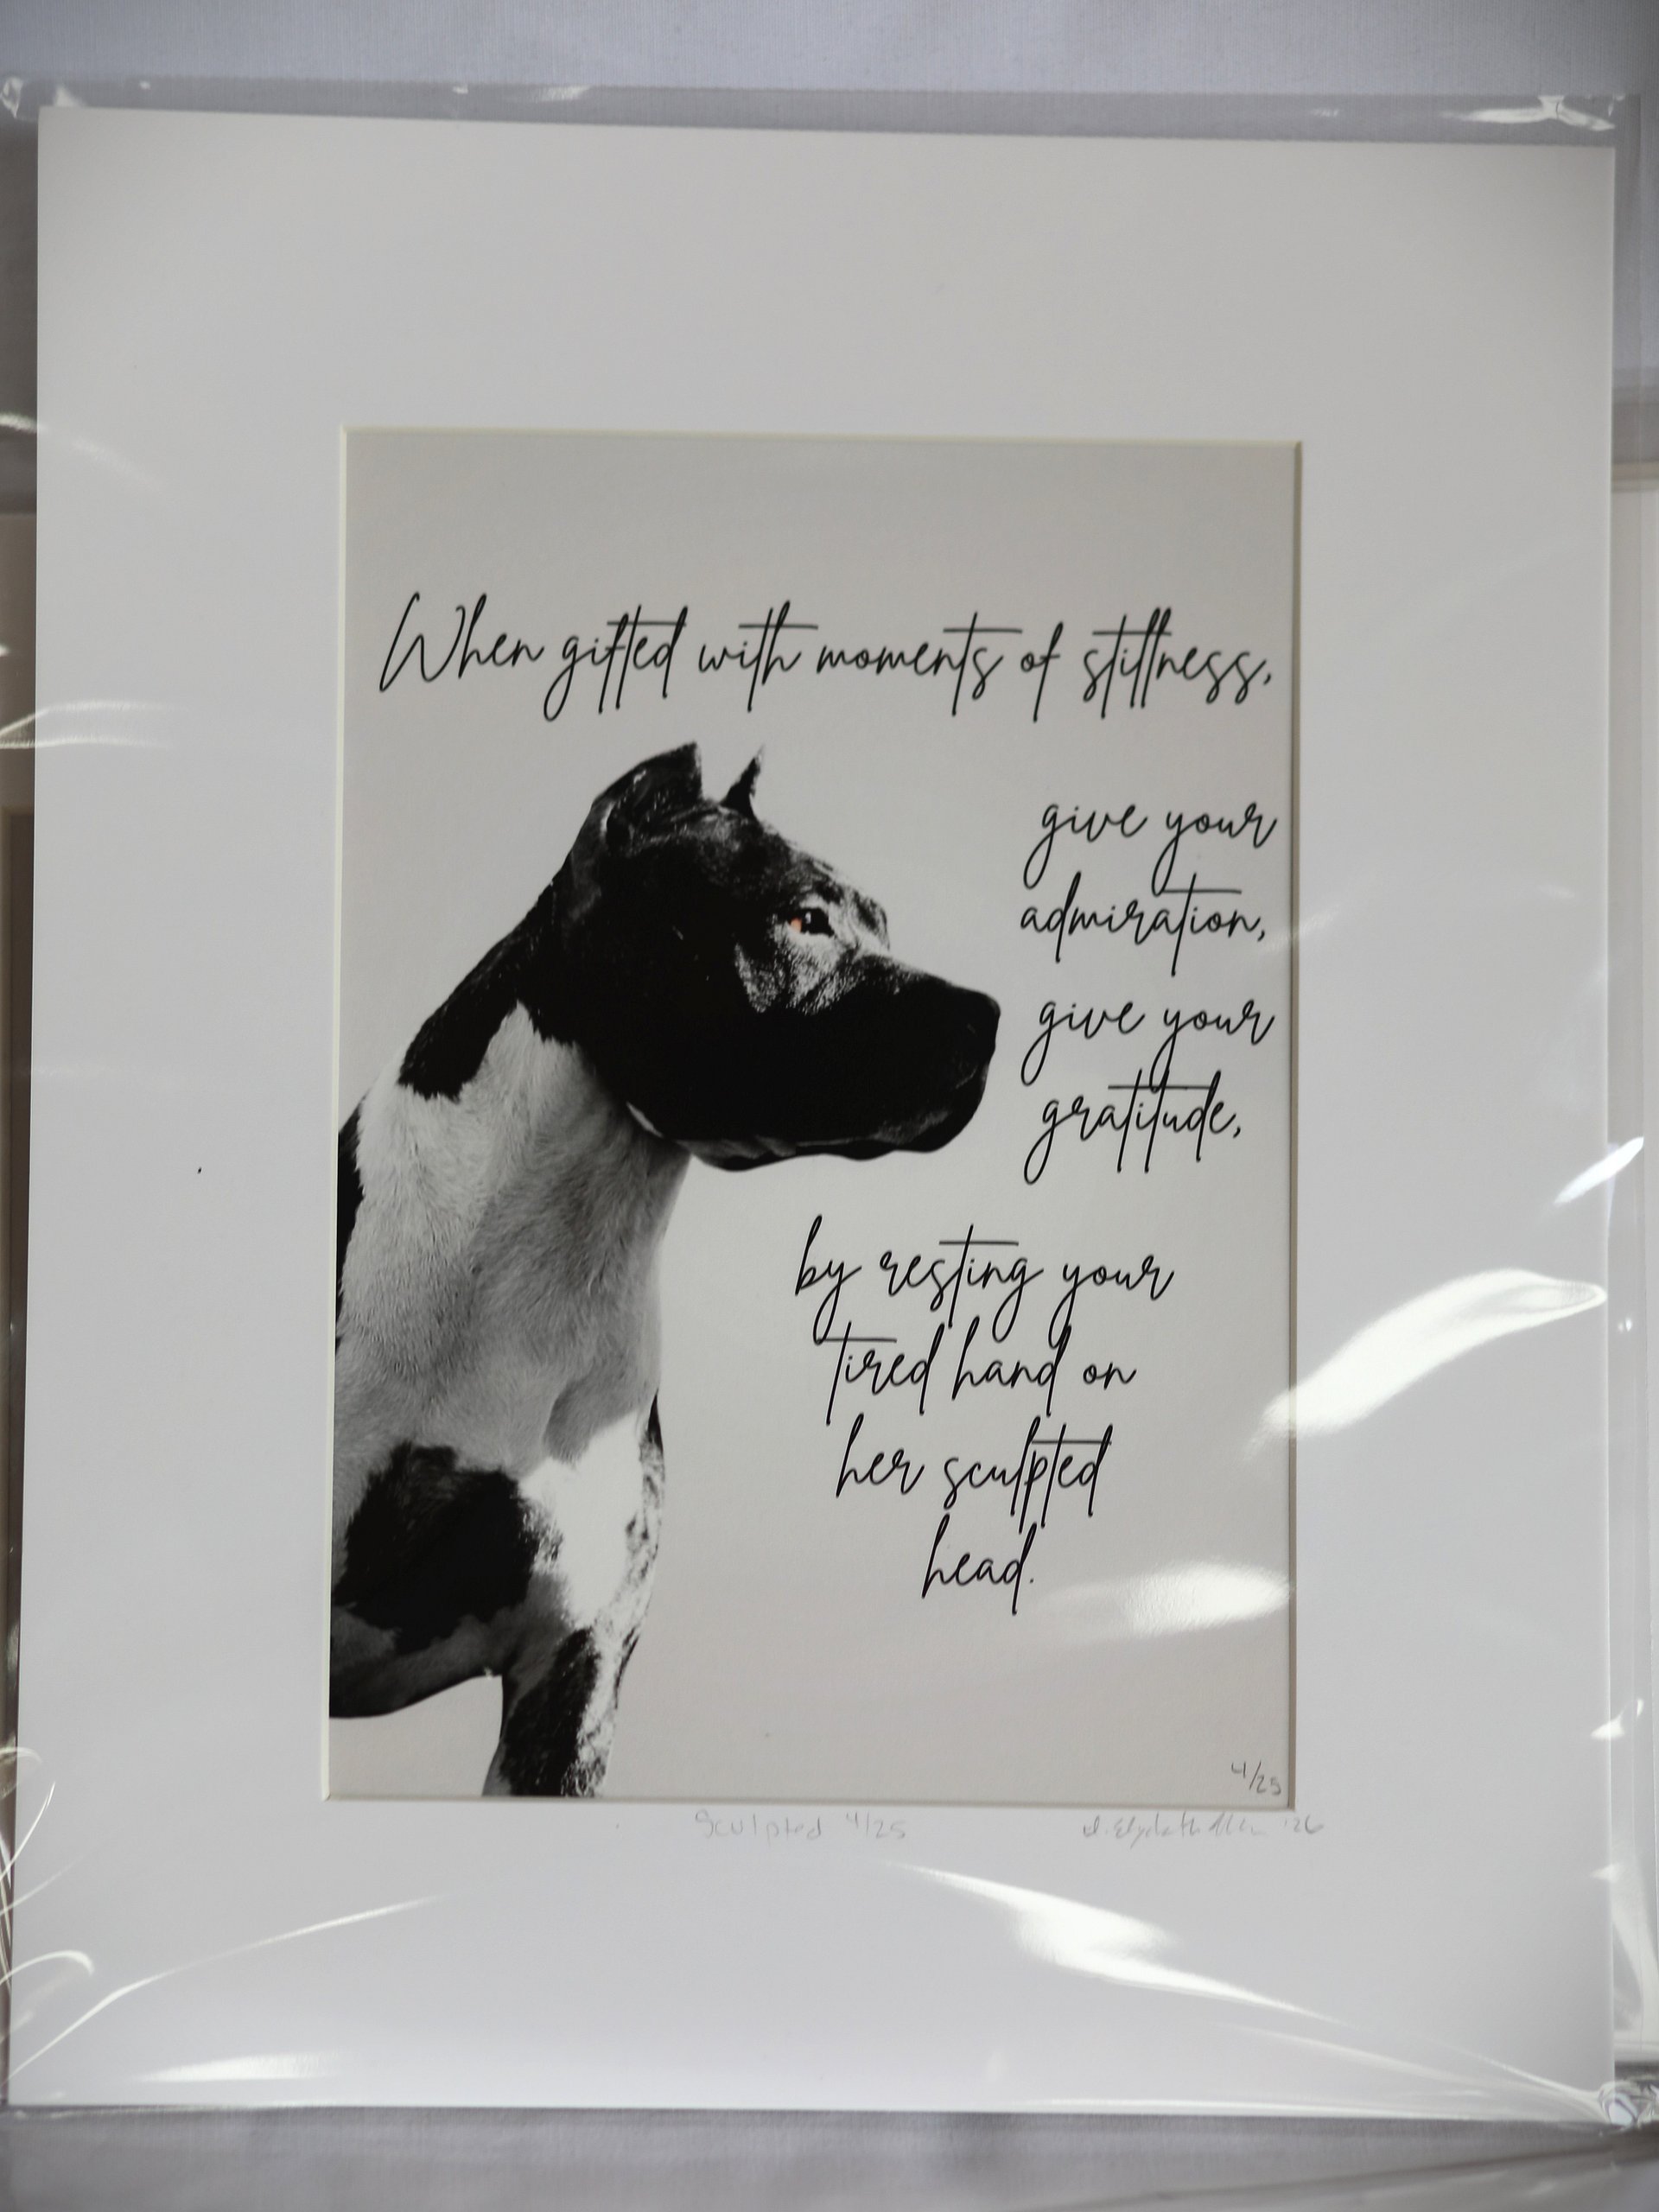 When gifted with moments of stillness,
give your
admiration,
give your
gratitude,
by resting your
tired hand on
her sculpted
head.
4/25
Sculpted 4/25
'26